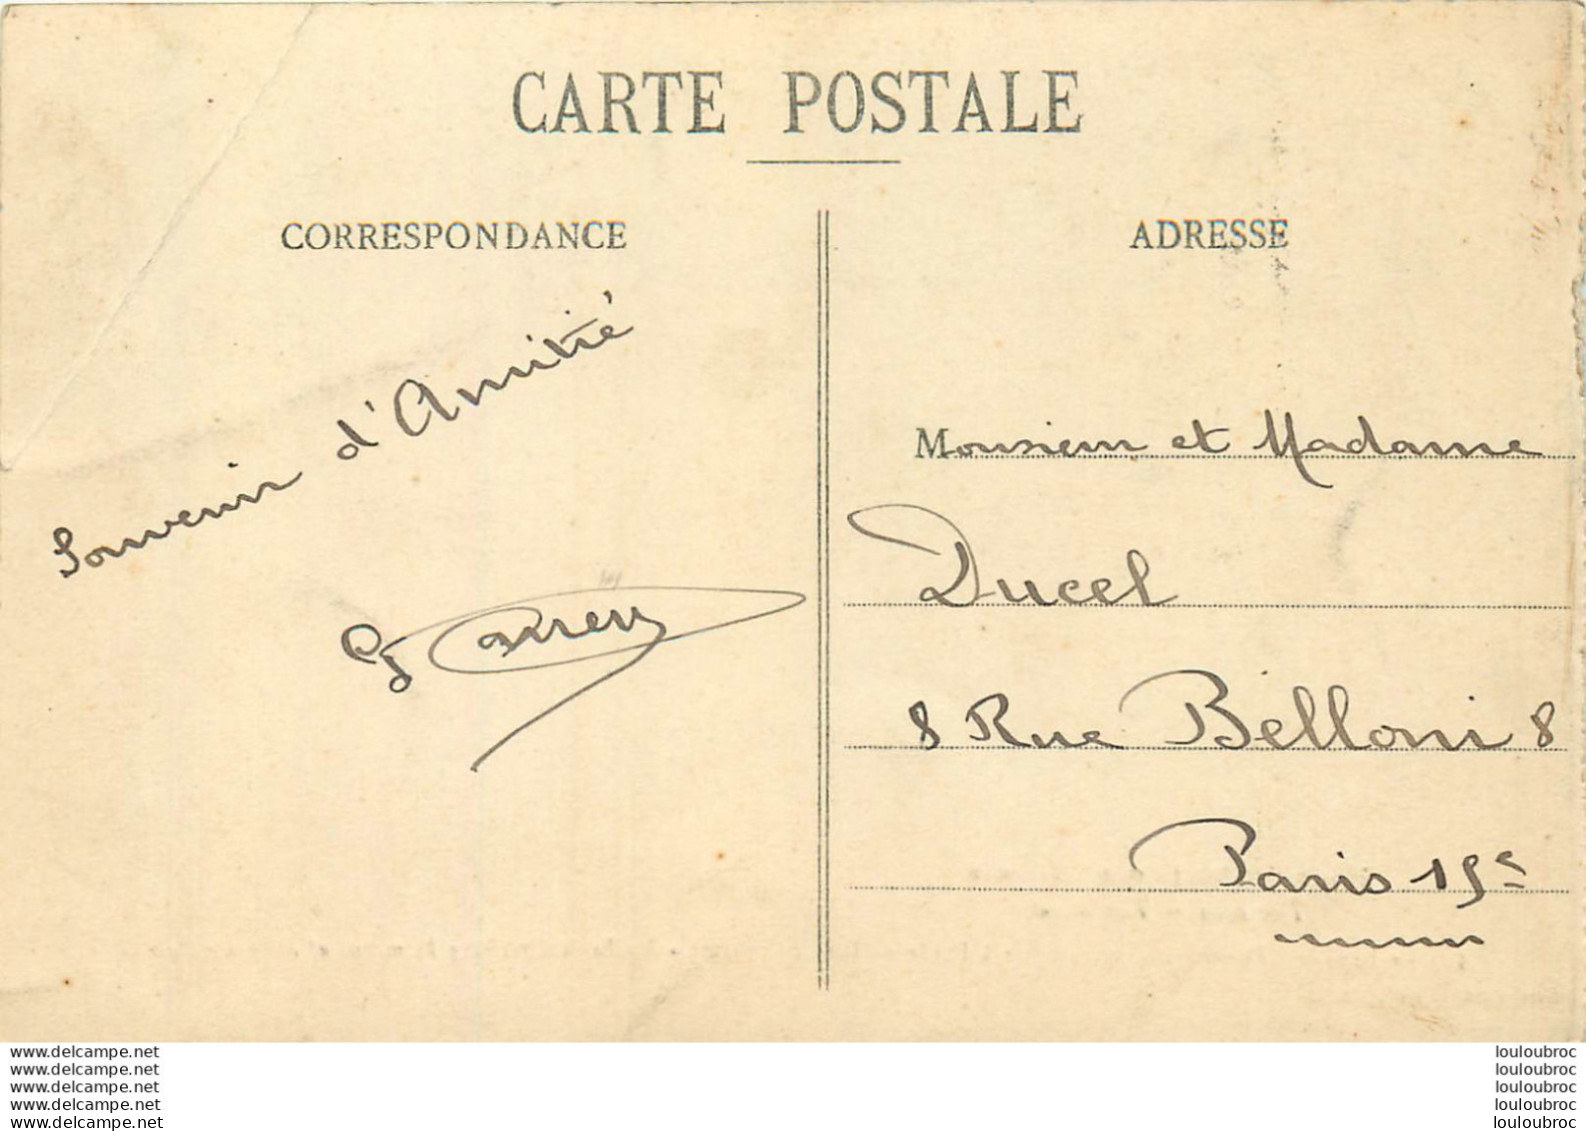 CARTE POSTALE
CORRESPONDANCE
Souvenir d'Amitié
ADRESSE
Monsieur et Madame
Ducel
8 Rue Belloni 8
Paris 15e
www.delcampe.net
www.delcampe.net
www.delcampe.net
www.delcampe.net
www.delcampe.net
louloubroc
louloubroc
louloubroc
louloubroc
louloubroc